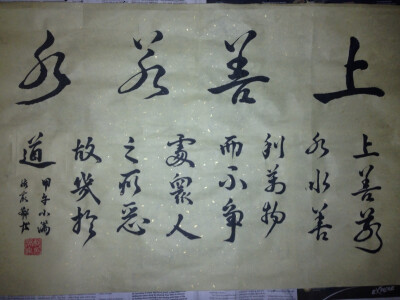 上善若水
上善若
水水善
利萬物
而不争
處衆人
之所惡
故幾於
道
甲午小满